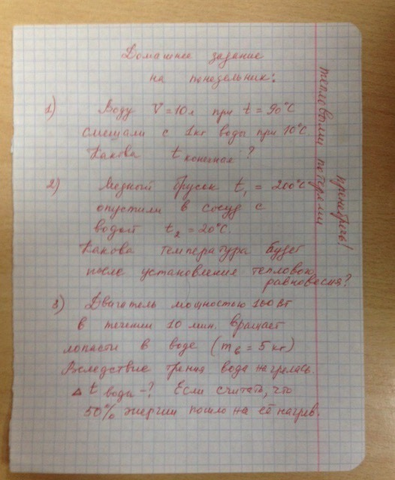 Домашнее задание
на понедельник:
1) Воду V=10л при t=90°C
смешали с 1кг воды при 10°C
Какова t конечная ?
2) Медный брусок t₁ = 200°C
опустили в сосуд с
водой t₂ = 20°C
Какова температура будет
после установления теплового
равновесия?
3) Двигатель мощностью 100 Вт
в течении 10 мин. вращает
лопасти в воде (mв = 5 кг)
Вследствие трения вода нагрелась.
Δ t воды -? Если считать, что
50% энергии пошло на её нагрев.
тепловыми потерями
пренебречь!